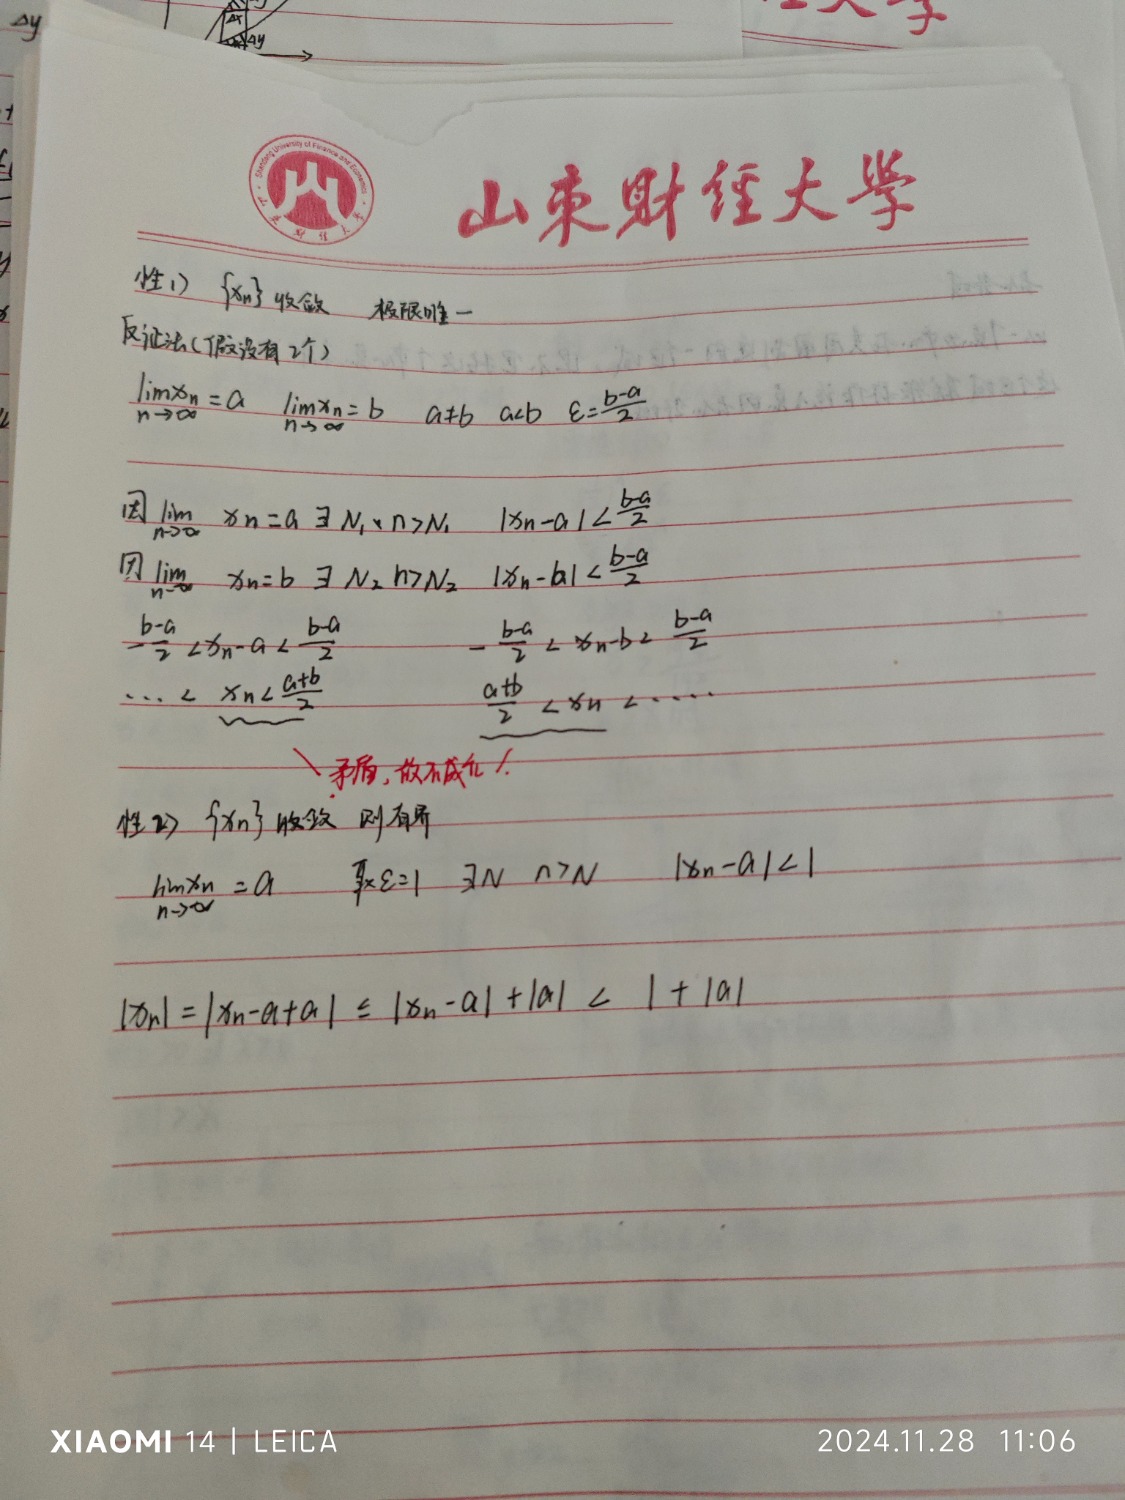 Δy
Δx
Δy
Shandong University of Finance and Economics
山东财经大学
山東財經大學
性1) {xn} 收敛 极限唯一
反证法(假设有2个)
lim xn = a lim xn = b a≠b a<b ε = b-a/2
n→∞ n→∞
因 lim xn = a ∃ N₁, n>N₁ |xn-a| < b-a/2
n→∞
因 lim xn = b ∃ N₂ n>N₂ |xn-b| < b-a/2
n→∞
- b-a/2 < xn-a < b-a/2 - b-a/2 < xn-b < b-a/2
... < xn < a+b/2 a+b/2 < xn < .....
矛盾,故不成立!
性2) {xn} 收敛 则有界
lim xn = a 取ε=1 ∃N n>N |xn-a|<1
n→∞
|xn| = |xn-a+a| ≤ |xn-a|+|a| < 1+|a|
XIAOMI 14 | LEICA
2024.11.28 11:06